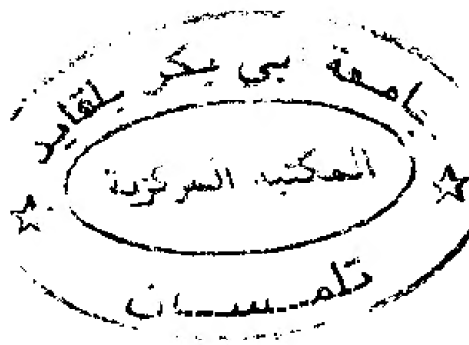 جامعة ابي بكر بلقايد
المكتبة المركزية
تلمسان